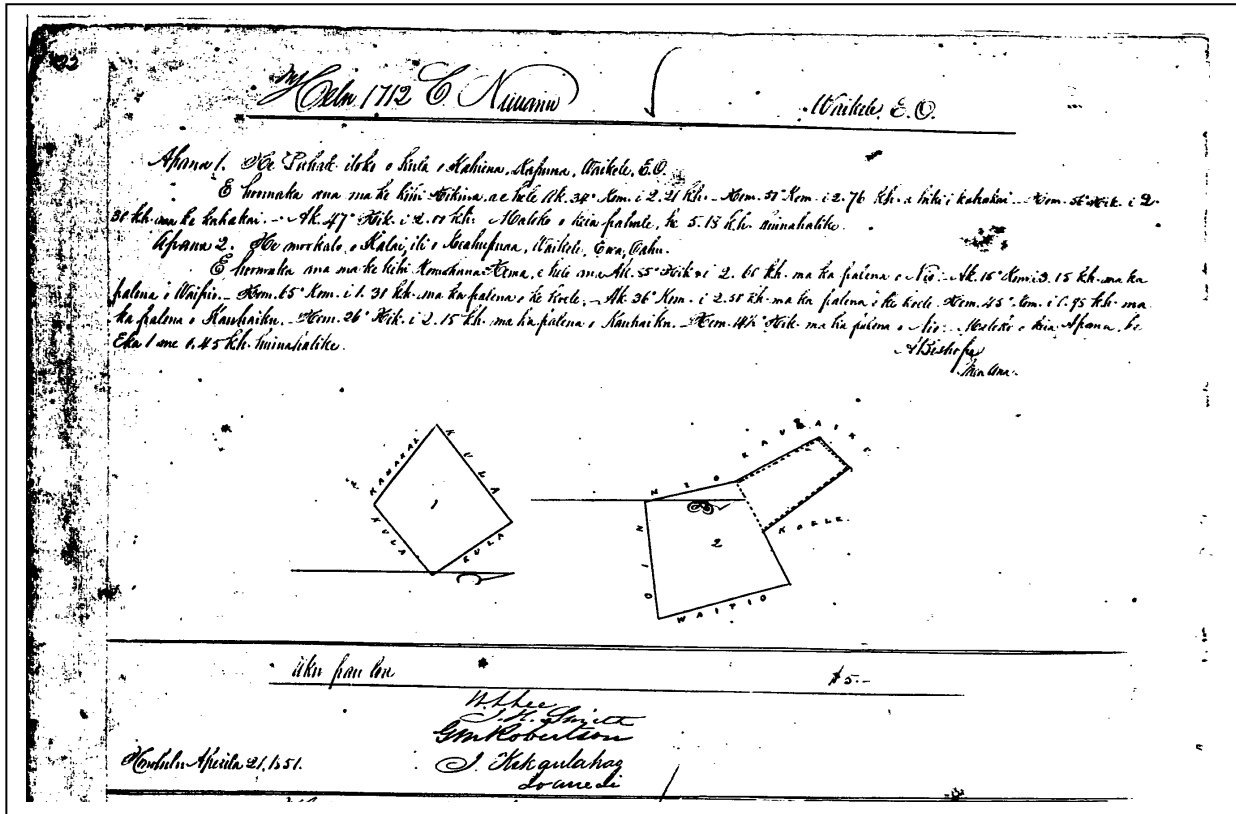 Helu 1712 C Nuuanu Waikele, E.O.
Apana 1. He Pahale iloko o kula o Kahaina, Kapuna, Waikele, E.O.
E hoomaka ana ma ke kihi Hikina a e hele Ak. 34° Kom. i 2.21 Kh. - Hem. 51° Kom. i 2.76 Kh. a hiki i kahakai - Hem. 56° Hik. i 2.
38 Kh. ma ke kahakai. - Ak. 47° Hik. i 2. Kh: Maloko o keia pahale, he 5.13 Kh. kuinahalike.
Apana 2. He mookalo, o Kalai, ili o Keahupuaa, Waikele, Ewa, Oahu.
E hoomaka ana ma ke kihi Komohana Hema, e hele ma Ak. 5° Hik. i 2. Kh. ma ka palena o Nio. - Ak. 16° Kom. i 3.15 Kh. ma ka
palena o Waipio. - Hem. 65° Kom. i 1.31 Kh. ma ka palena o ke koele. - Ak. 36° Kom. i 2.58 Kh. ma ka palena o ke koele. Hem. 45° Kom. i 0.95 Kh. ma
ka palena o Kauhaiku. - Hem. 26° Hik. i 2.15 Kh. ma ka palena o Kauhaiku. - Hem. 14½° Hik. ma ka palena o Nio: - Maloko o keia Apana, he
Eka 1 me 0.45 Kh. kuinahalike.
A Bishop
Mea Ana.
KAHAKAI
KULA
KULA
KULA
1
NIO
KAUHAIKU
KOELE.
NIO
WAIPIO
2
Uku pau loa $5.-
W. L. Lee
J. H. Smith
G M Robertson
Honolulu Aperila 21, 1851. J. Kekaulahao
Ioane Ii